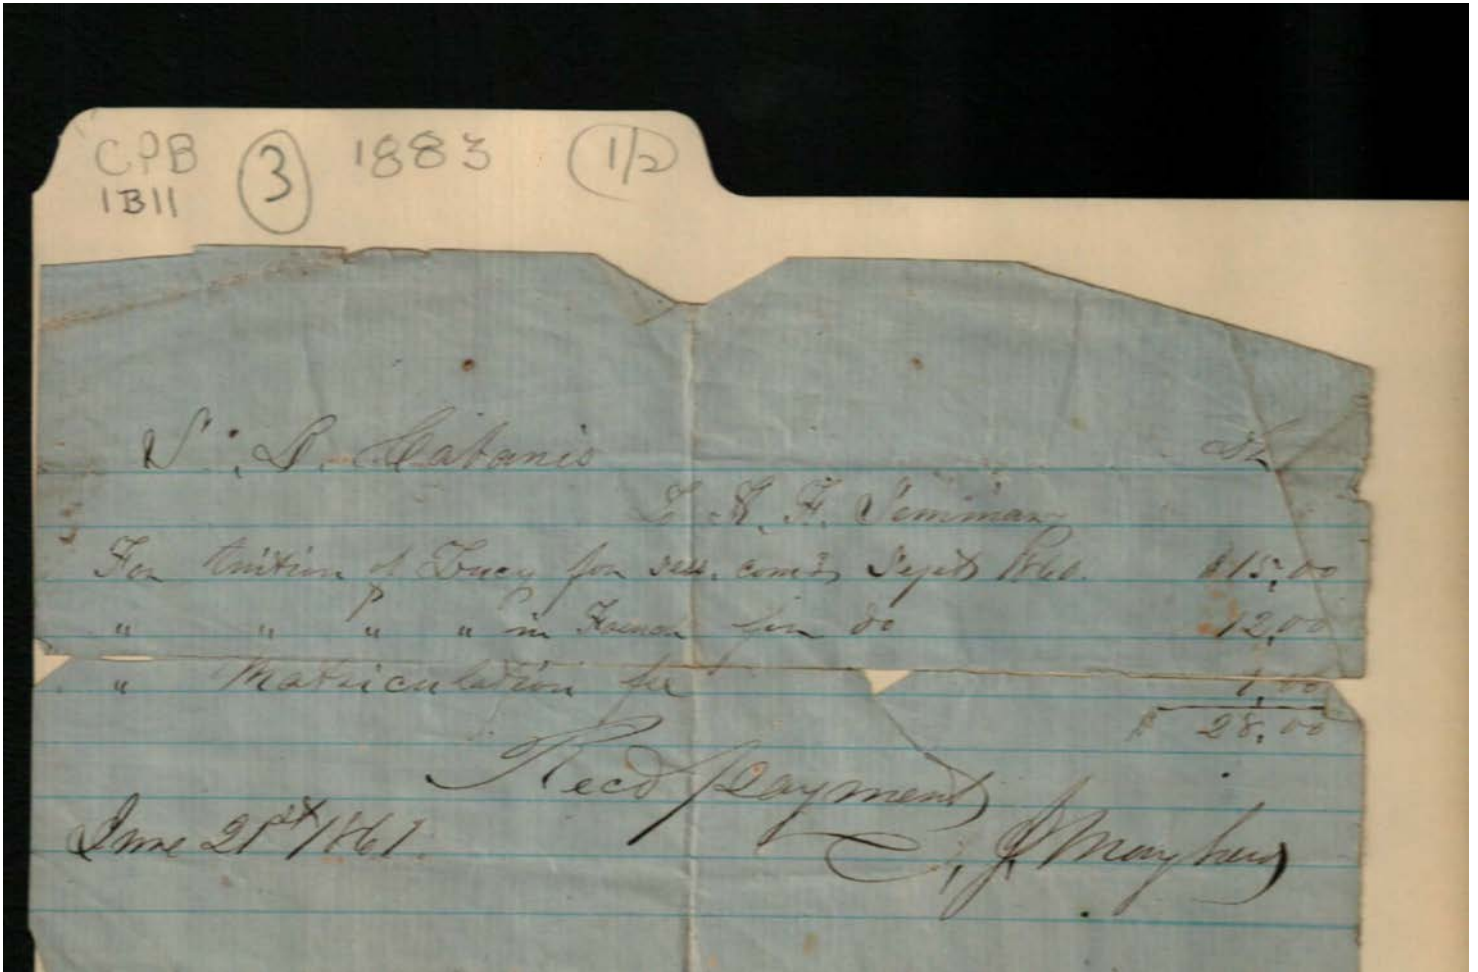 CPB ③ 1883 (1/2)
1B11
S. D. Cabanis Dr
To H. F. Seminary
For tuition of Lucy for ses. com'g Sept 1860. $15.00
" " " " in French for do 12.00
" Matriculation fee 1.00
$ 28.00
Recd payment
June 21st 1861.